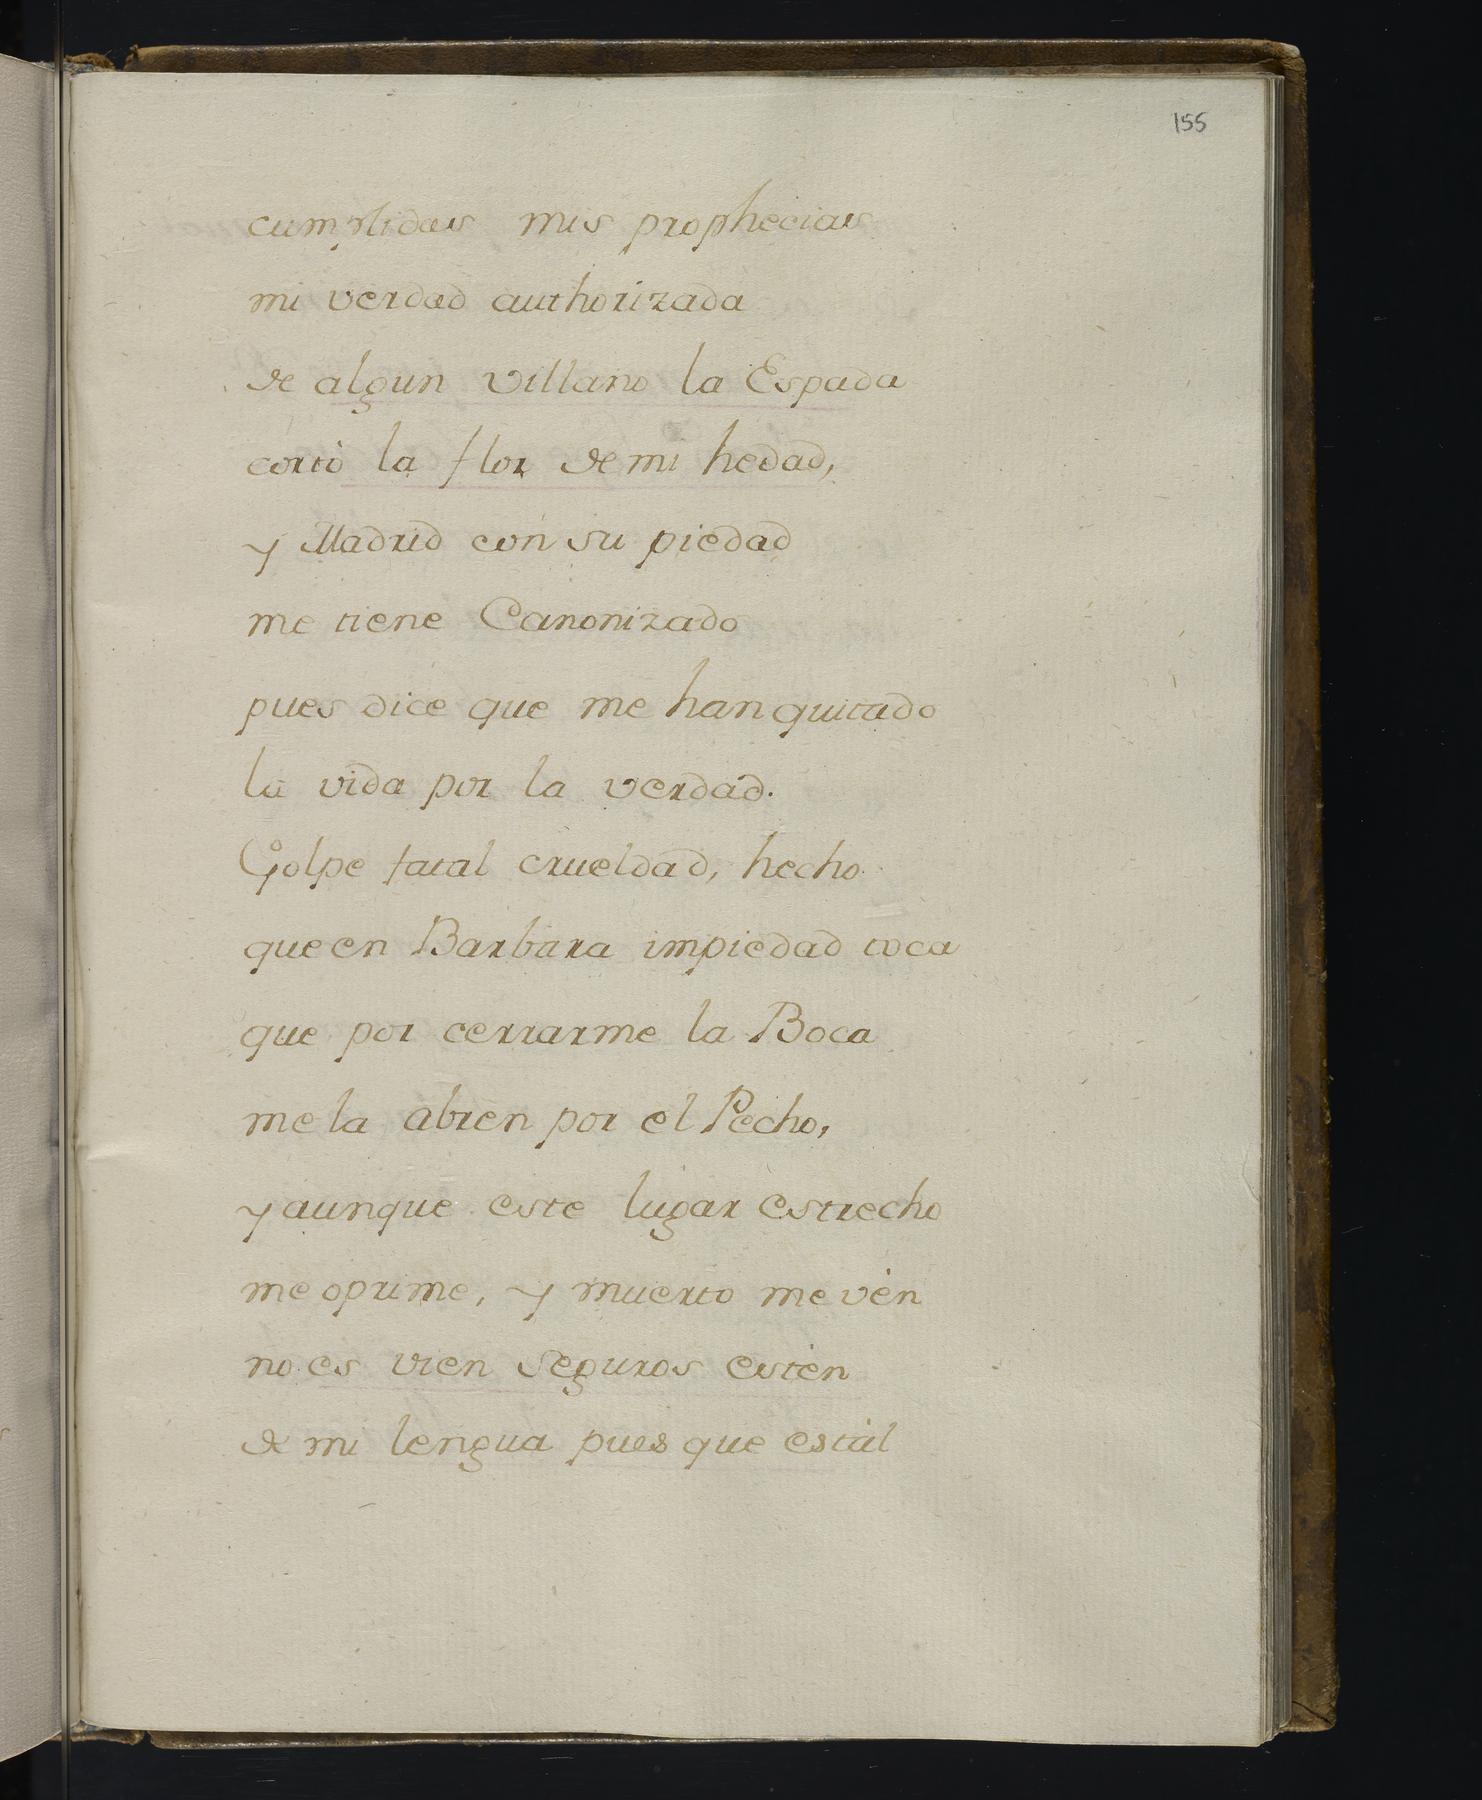 155
cumplidas mis prophecias
mi verdad authorizada
de algun villano la Espada
cortò la flor de mi hedad,
y Madrid con su piedad
me tiene Canonizado
pues dice que me han quitado
la vida por la verdad.
Golpe fatal crueldad, hecho
que en Barbara impiedad toca
que por cerrarme la Boca
me la abren por el Pecho,
y aunque este lugar estrecho
me oprime, y muerto me vèn
no es vien seguros estèn
de mi lengua pues que estàl